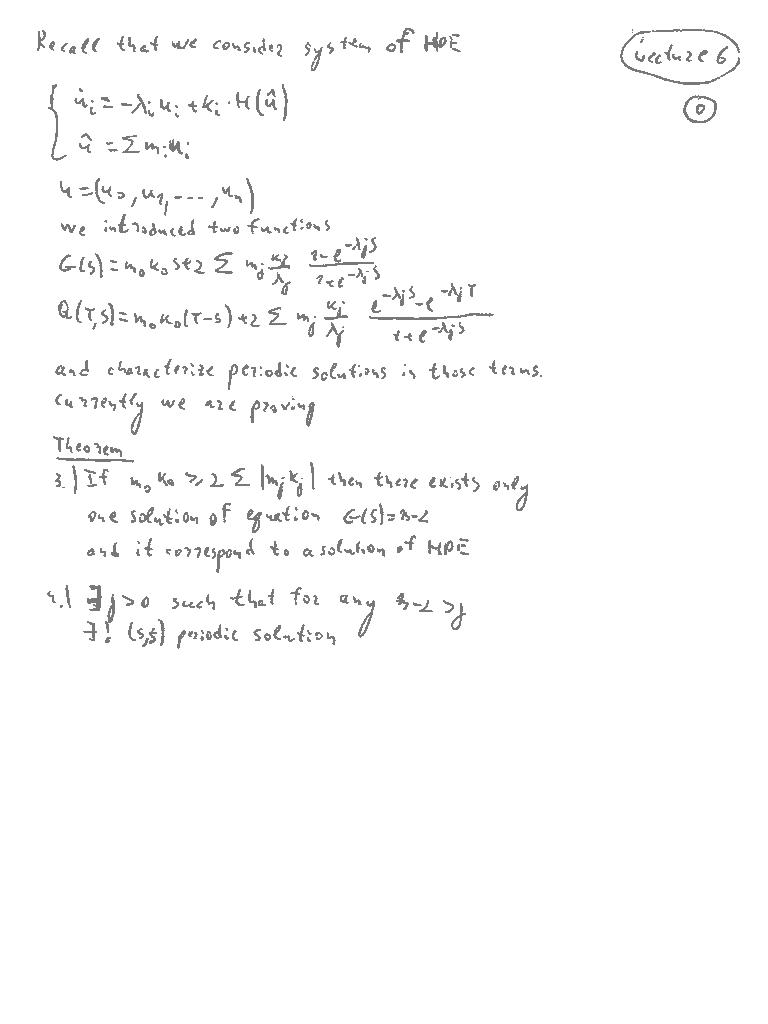 Recall that we consider system of HDE
Lecture 6
0
u̇ᵢ = -λᵢ uᵢ + kᵢ · H(û)
û = Σ mᵢ uᵢ
u = (u₀, u₁, ---, uₙ)
we introduced two functions
G(s) = m₀ k₀ s + 2 Σ mⱼ kⱼ/λⱼ (1 - e^(-λⱼ s))/(1 + e^(-λⱼ s))
Q(τ,s) = m₀ k₀ (τ-s) + 2 Σ mⱼ kⱼ/λⱼ (e^(-λⱼ s) - e^(-λⱼ τ))/(1 + e^(-λⱼ s))
and characterize periodic solutions in those terms.
Currently we are proving
Theorem
3.) If m₀ k₀ ≥ 2 Σ |mⱼ kⱼ| then there exists only
one solution of equation G(s) = β-α
and it correspond to a solution of HDE
4.) ∃ j > 0 such that for any β-α > j
∃! (s,s) periodic solution